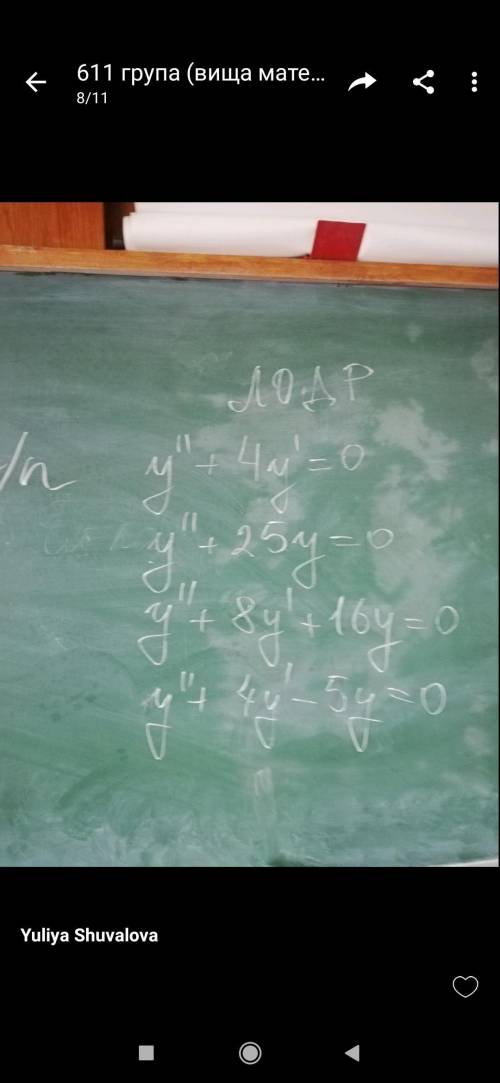 611 група (вища мате...
8/11
ЛОДР
д/п
y'' + 4y' = 0
y'' + 25y = 0
y'' + 8y' + 16y = 0
y'' + 4y' - 5y = 0
Yuliya Shuvalova